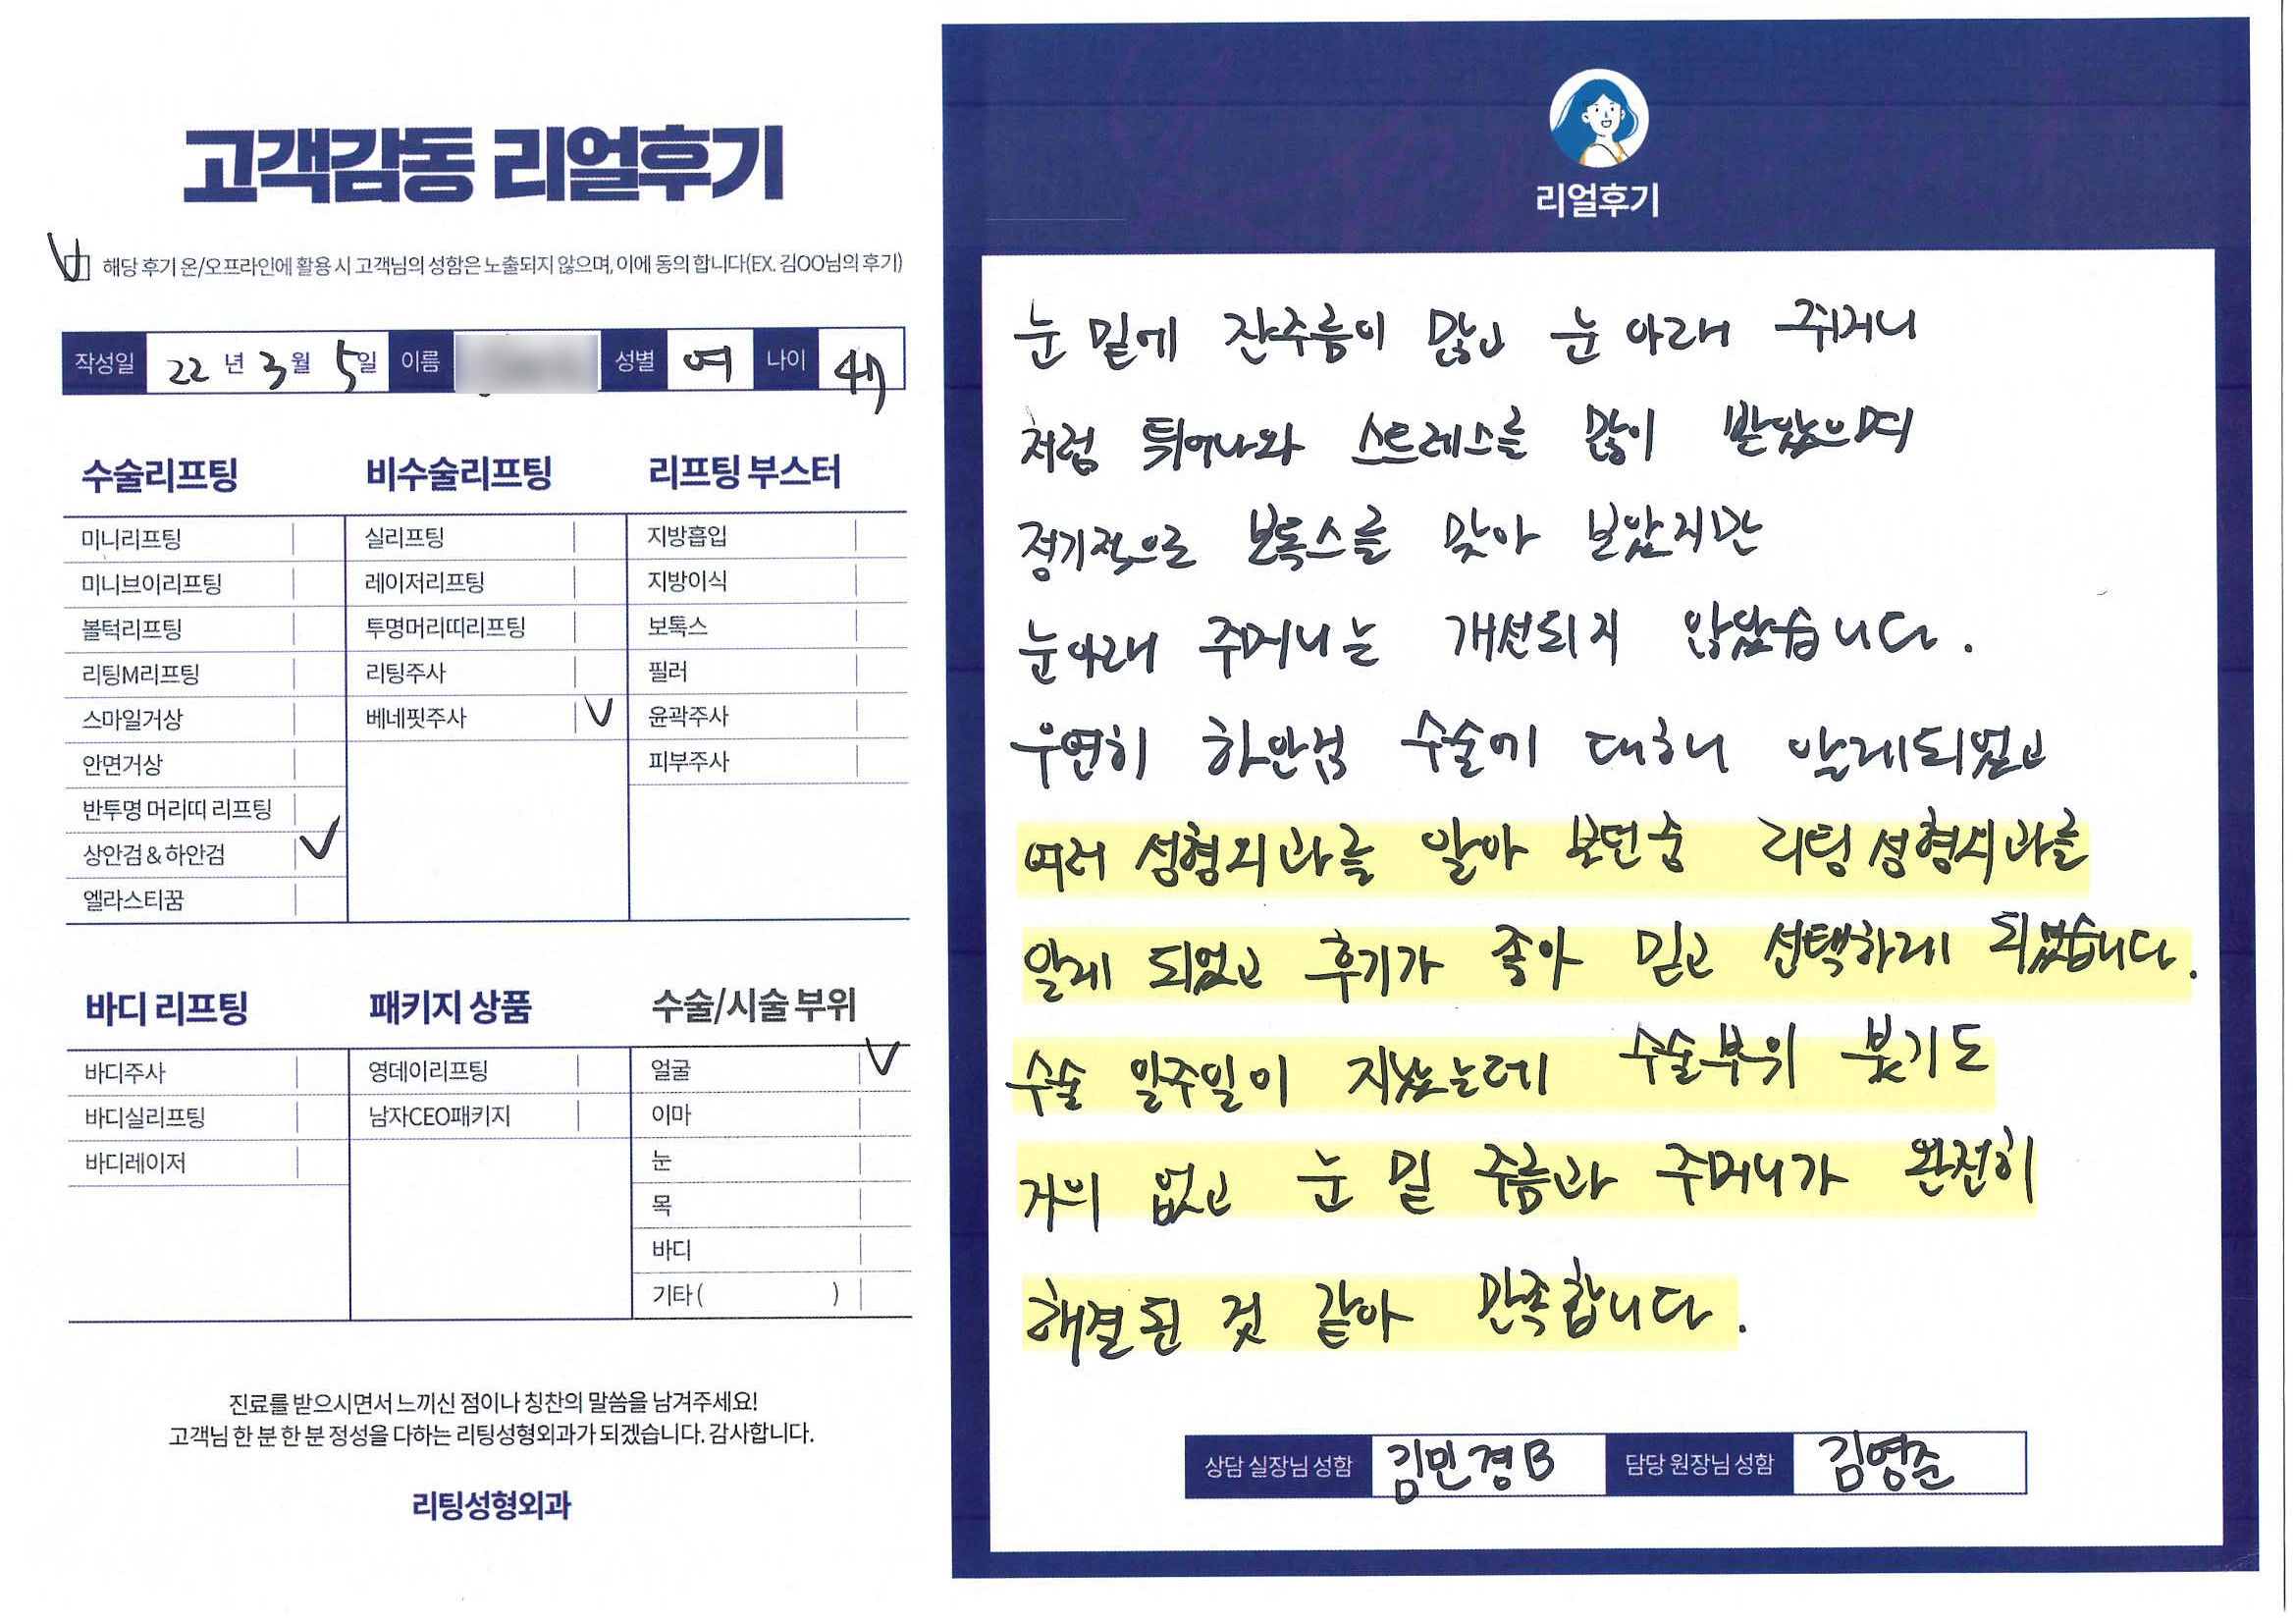 고객감동 리얼후기
해당 후기 온/오프라인에 활용 시 고객님의 성함은 노출되지 않으며, 이에 동의 합니다(EX. 김OO님의 후기)
작성일 22 년 3 월 5 일 이름 성별 여 나이
수술리프팅
미니리프팅
미니브이리프팅
볼턱리프팅
리팅M리프팅
스마일거상
안면거상
반투명 머리띠 리프팅
상안검 & 하안검
엘라스티꿈
비수술리프팅
실리프팅
레이저리프팅
투명머리띠리프팅
리팅주사
베네핏주사
리프팅 부스터
지방흡입
지방이식
보톡스
필러
윤곽주사
피부주사
바디 리프팅
바디주사
바디실리프팅
바디레이저
패키지 상품
영데이리프팅
남자CEO패키지
수술/시술 부위
얼굴
이마
눈
목
바디
기타 ( )
진료를 받으시면서 느끼신 점이나 칭찬의 말씀을 남겨주세요!
고객님 한 분 한 분 정성을 다하는 리팅성형외과가 되겠습니다. 감사합니다.
리팅성형외과
리얼후기
눈 밑에 잔주름이 많고 눈 아래 주머니
처럼 튀어나와 스트레스를 많이 받았으며
정기적으로 보톡스를 맞아 보았지만
눈아래 주머니는 개선되지 않았습니다.
우연히 하안검 수술에 대하니 알게되었고
여러 성형외과를 알아 보던중 리팅성형외과를
알게 되었고 후기가 좋아 믿고 선택하게 되었습니다.
수술 일주일이 지났는데 수술부위 붓기도
거의 없고 눈 밑 주름과 주머니가 완전히
해결된 것 같아 만족합니다.
상담 실장님 성함 김민경B 담당 원장님 성함 김영준